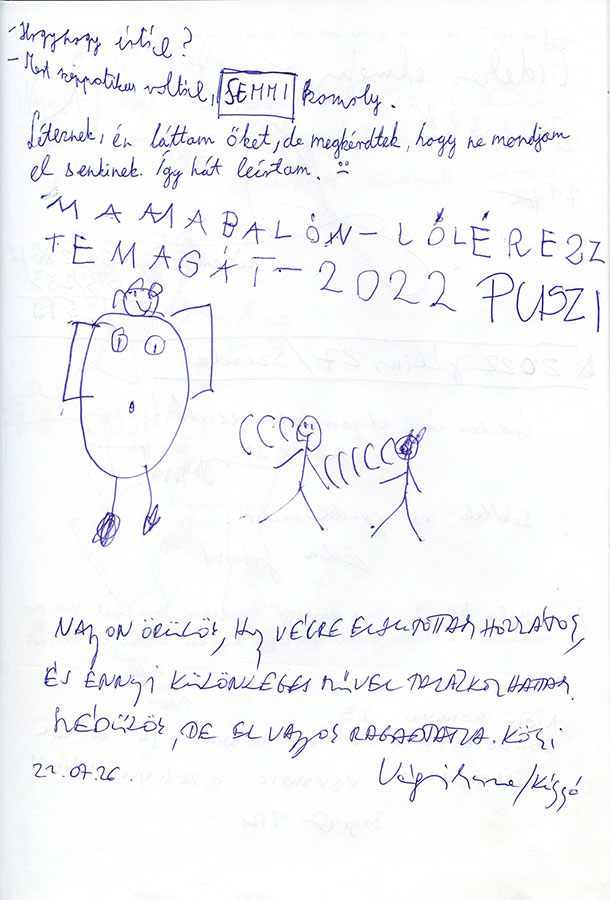 - Hogyhogy értél?
- Mert szippatikus voltál, SEMMI komoly.
Léteznek, én láttam őket, de megkérdtek, hogy ne mondjam
el senkinek. Így hát leírtam.
MAMABALÓN - LŐLÉREZZ
TEMAGÁT - 2022 PUSZI
NAGYON ÖRÜLÖK, HOGY VÉGRE ELJUTOTTAM HOZZÁTOK,
ÉS ENNYI KÜLÖNLEGES MŰVEL TALÁLKOZHATTAM.
DE EL VAGYOK RAGADTATVA. KÖSZI
22.07.26.